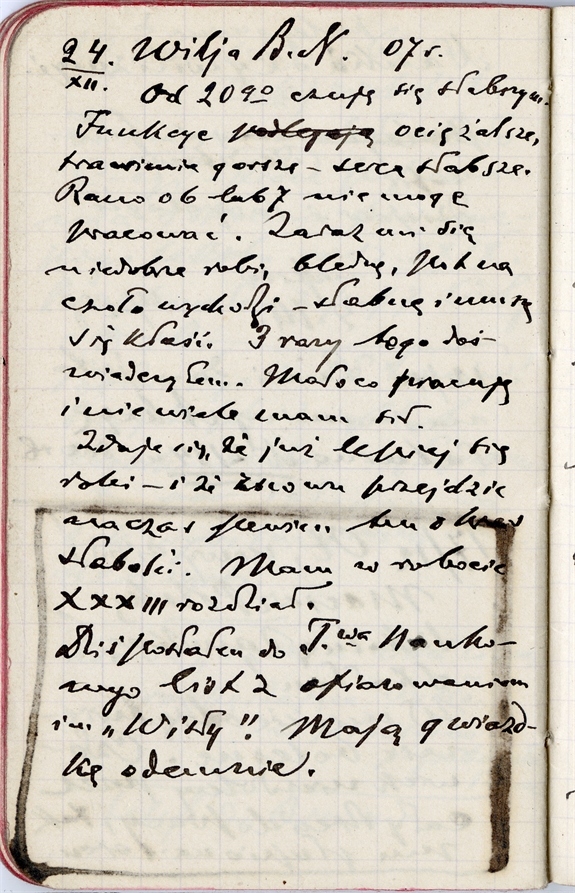 24. Wilja B.N. 07 r.
XII. Od 20go czuję się słabszym.
Funkcye podlegają ociężalsze,
trawienie gorsze – serce słabsze.
Rano o 6 lub 7 nie mogę
pracować. Zaraz mi się
niedobrze robi, blednę, pot na
czoło wychodzi – słabnę i muszę
się kłaść. 3 razy tego doś-
wiadczyłem. Mało co pracuję
i nie wiele mam sił.
Zdaje się, że już lepiej się
robi – i że znowu przejdzie
na czas pewien ten okres
słabości. Mam w robocie
XXXIII rozdział.
Dziś posłałem do T.wa Nauko-
wego list z ofiarowaniem
im „Wisły". Mają gwiazd-
kę odemnie.